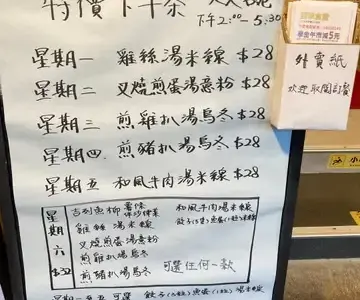 特價下午茶
下午2:00-5:30
星期一 雞絲湯米線 $28
星期二 叉燒煎蛋湯意粉 $28
星期三 煎雞扒湯烏冬 $28
星期四 煎豬扒湯烏冬 $28
星期五 和風牛肉湯米線 $28
星期六 $32
吉列魚柳 薯條
和風牛肉湯米線
雞絲湯米線
叉燒煎蛋湯意粉
煎雞扒湯烏冬
煎豬扒湯烏冬
可選任何一款
外賣紙
歡迎取閱訂餐